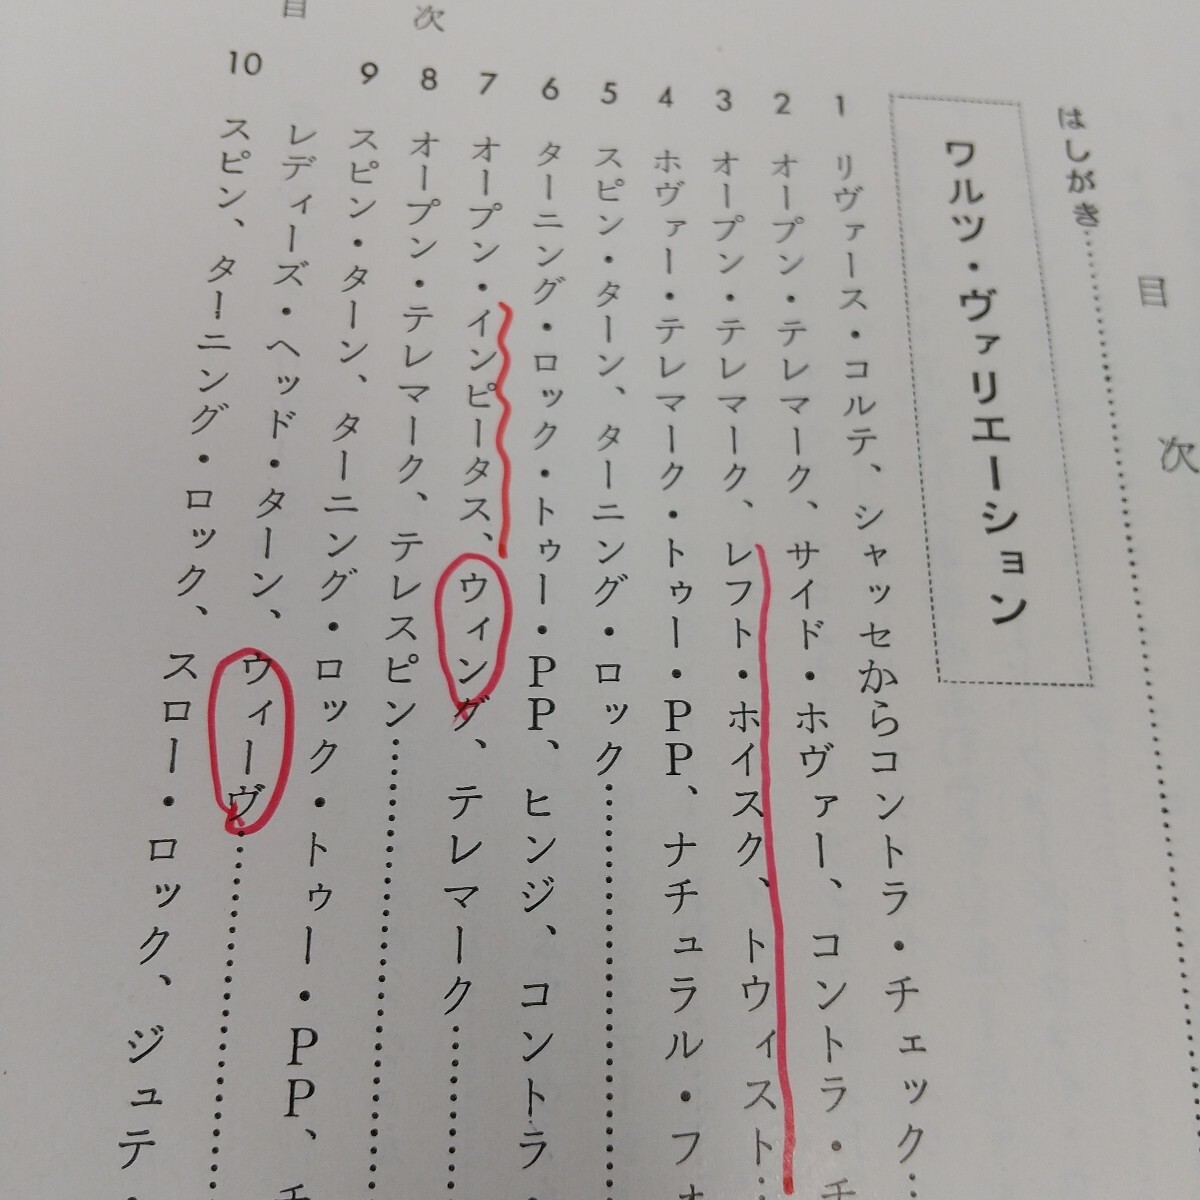 目 次
はしがき
ワルツ・ヴァリエーション
1 リヴァース・コルテ、シャッセからコントラ・チェック
2 オープン・テレマーク、サイド・ホヴァー、コントラ・チ
3 オープン・テレマーク、レフト・ホイスク、トウィスト
4 ホヴァー・テレマーク・トゥー・PP、ナチュラル・フォ
5 スピン・ターン、ターニング・ロック
6 ターニング・ロック・トゥー・PP、ヒンジ、コントラ・
7 オープン・インピータス、ウィング、テレマーク
8 オープン・テレマーク、テレスピン
9 スピン・ターン、ターニング・ロック・トゥー・PP、チ
レディーズ・ヘッド・ターン、ウィーヴ
10 スピン、ターニング・ロック、スロー・ロック、ジュテ・
目 次